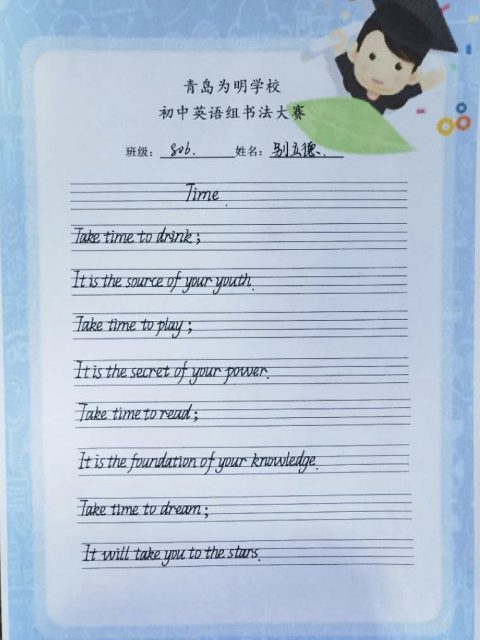 青岛为明学校
初中英语组书法大赛
班级: 806. 姓名: 别立德.
Time.
Take time to drink;
It is the source of your youth.
Take time to play;
It is the secret of your power.
Take time to read;
It is the foundation of your knowledge.
Take time to dream;
It will take you to the stars.